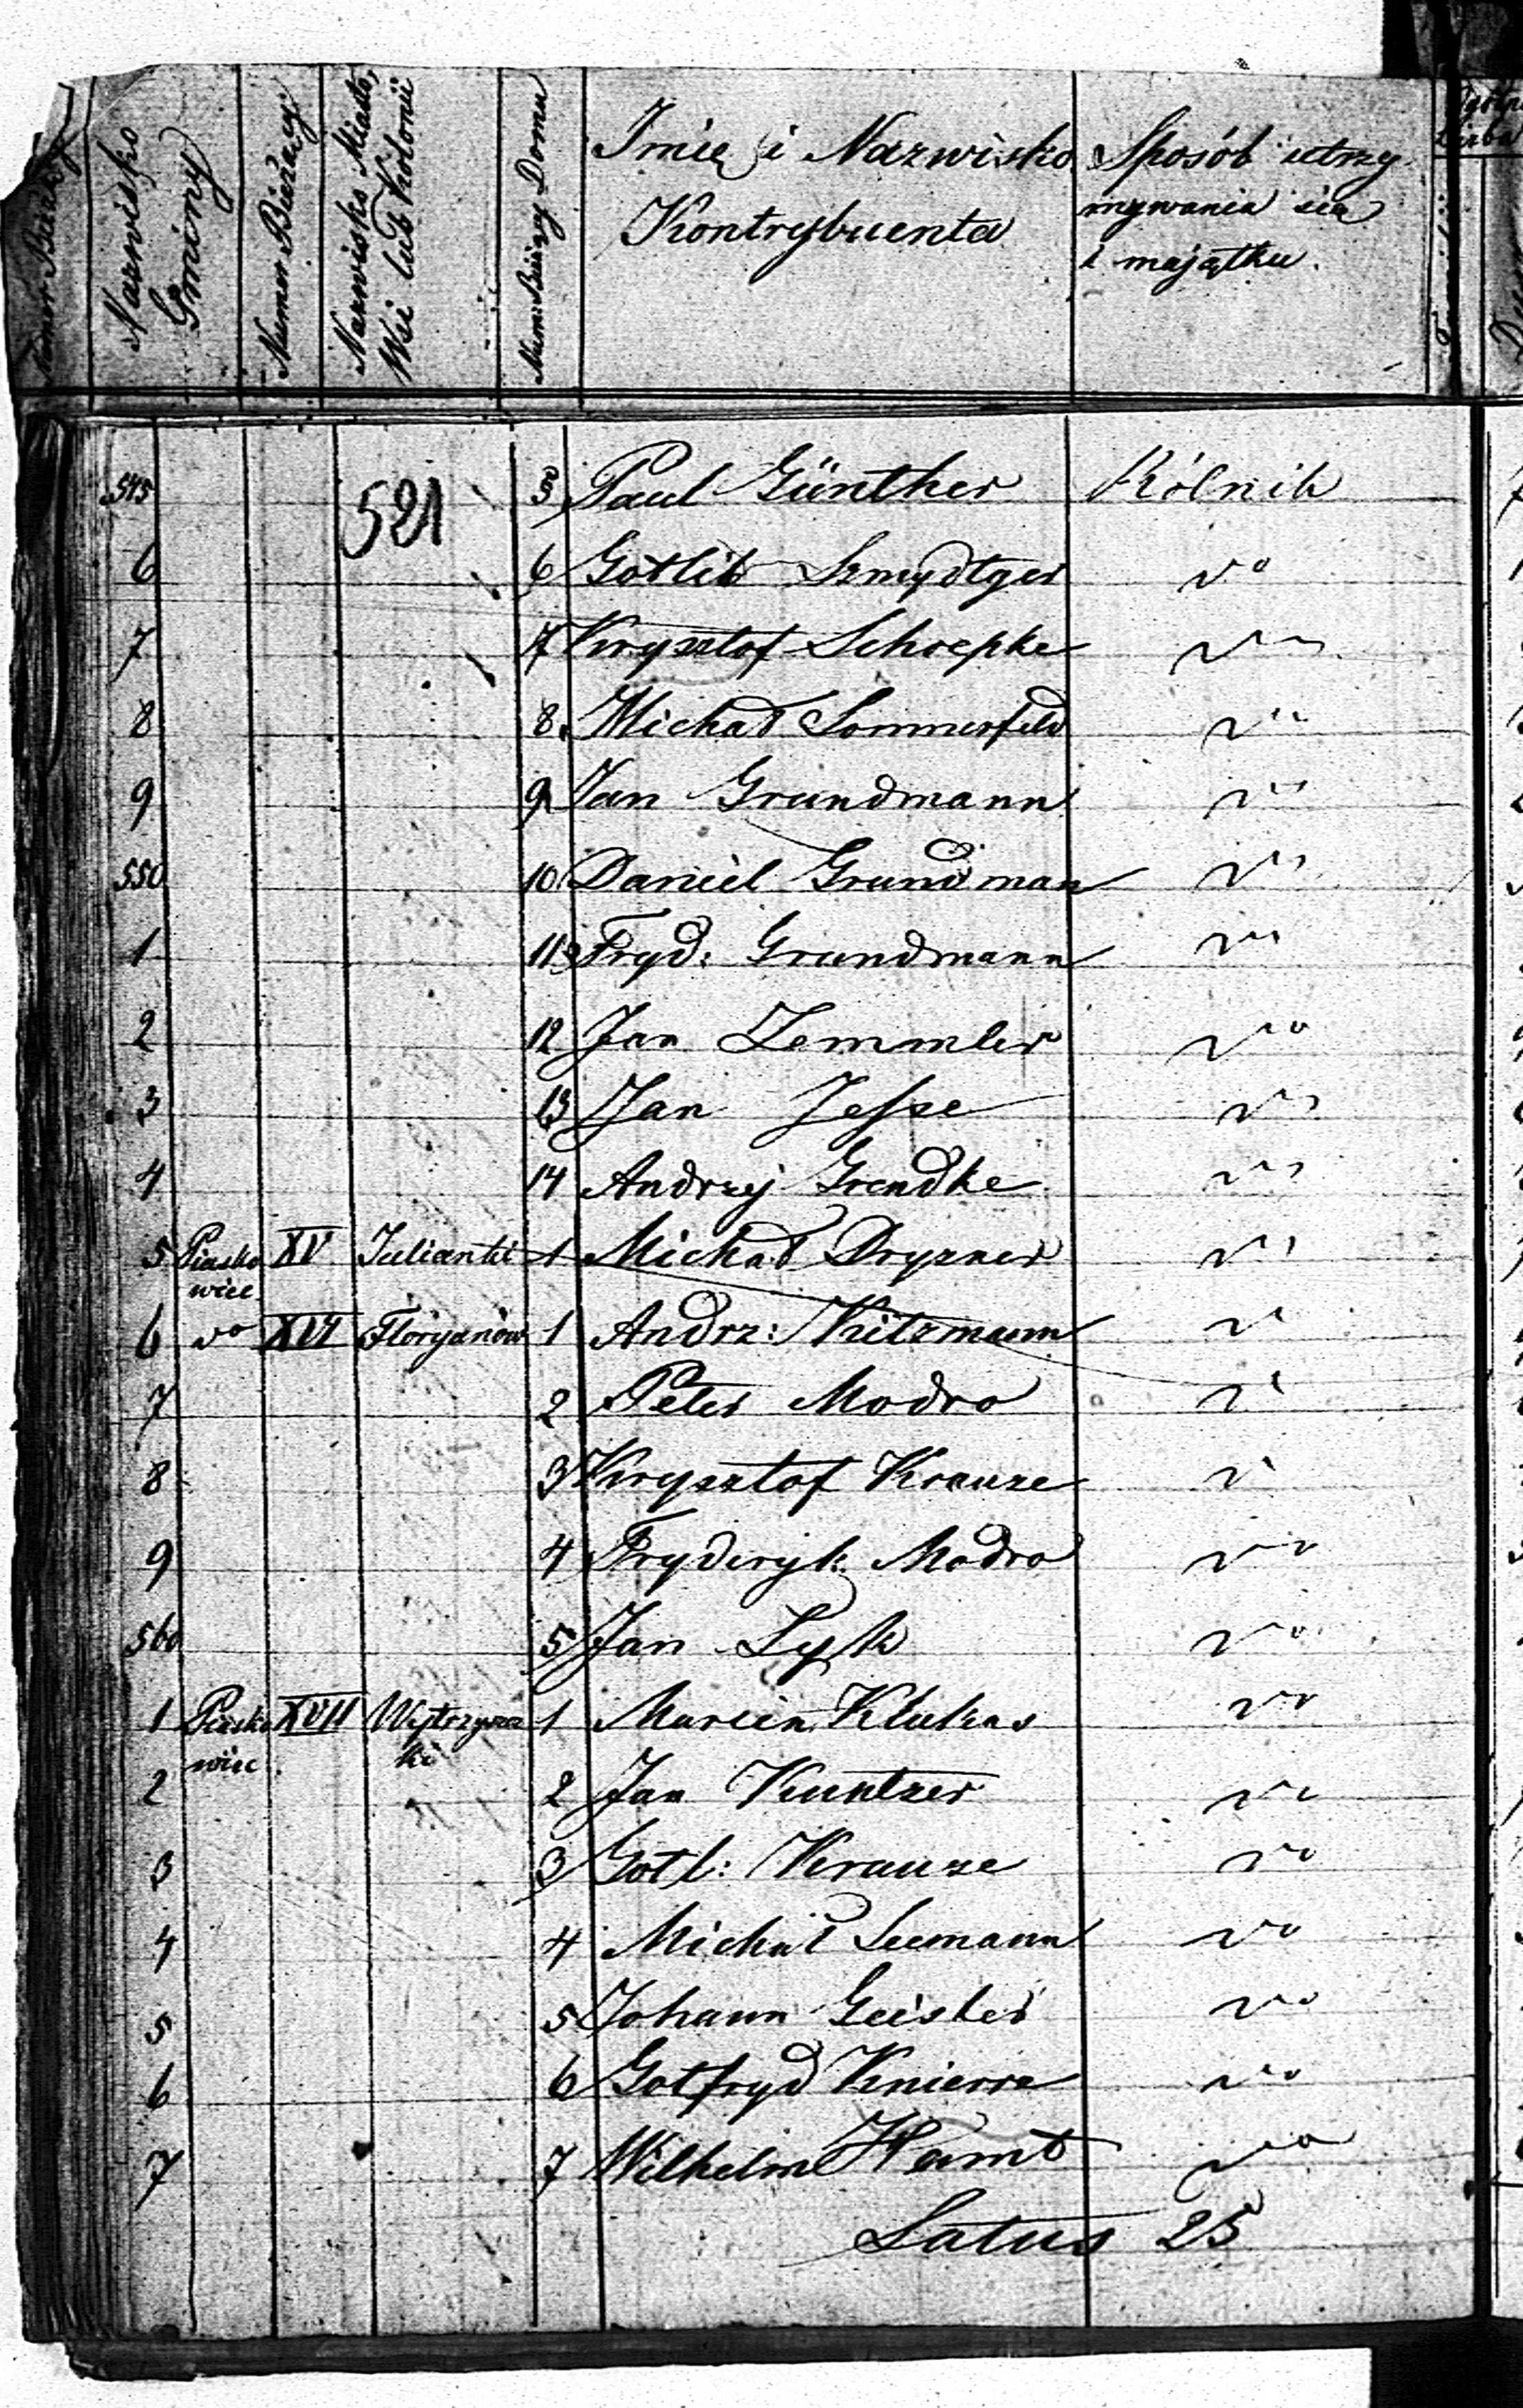 Numer Bieżący
Nazwisko Gminy
Numer Bieżący
Nazwisko Miasta, Wsi lub Kolonii
Num: Bieżący Domu
Imię i Nazwisko Kontrybuenta
Sposób utrzymywania się i majątku.
521
545 5 Paul Günther Rólnik
6 6 Gotlib Szmydtger vo
7 7 Krysztof Schoepke vo
8 8. Michał Sommerfeld vo
9 9 Jan Grundmann vo
550 10 Daniel Grundman vo
1 11 Fryd: Grundmann vo
2 12 Jan Zemmler vo
3 13 Jan Jesse vo
4 14 Andrzej Grendke vo
5 Piasko XV Julianki 1 Michał Dryzner vo
wiec
6 vo XVI Floryanów 1 Andrz: Kitzmann v
7 2 Peter Modro v
8 3 Krysztof Krauze v
9 4 Fryderyk Modro vo
560 5 Jan Lyk vo
1 Piasko XVII Wytrzyszc 1 Marcin Klukas vo
wiec ki
2 2 Jan Kuntzer vo
3 3 Gotl: Krauze vo
4 4 Michał Seemann vo
5 5 Johann Geisler vo
6 6 Gotfryd Knierre vo
7 7 Wilhelm Hamt vo
Latus 25